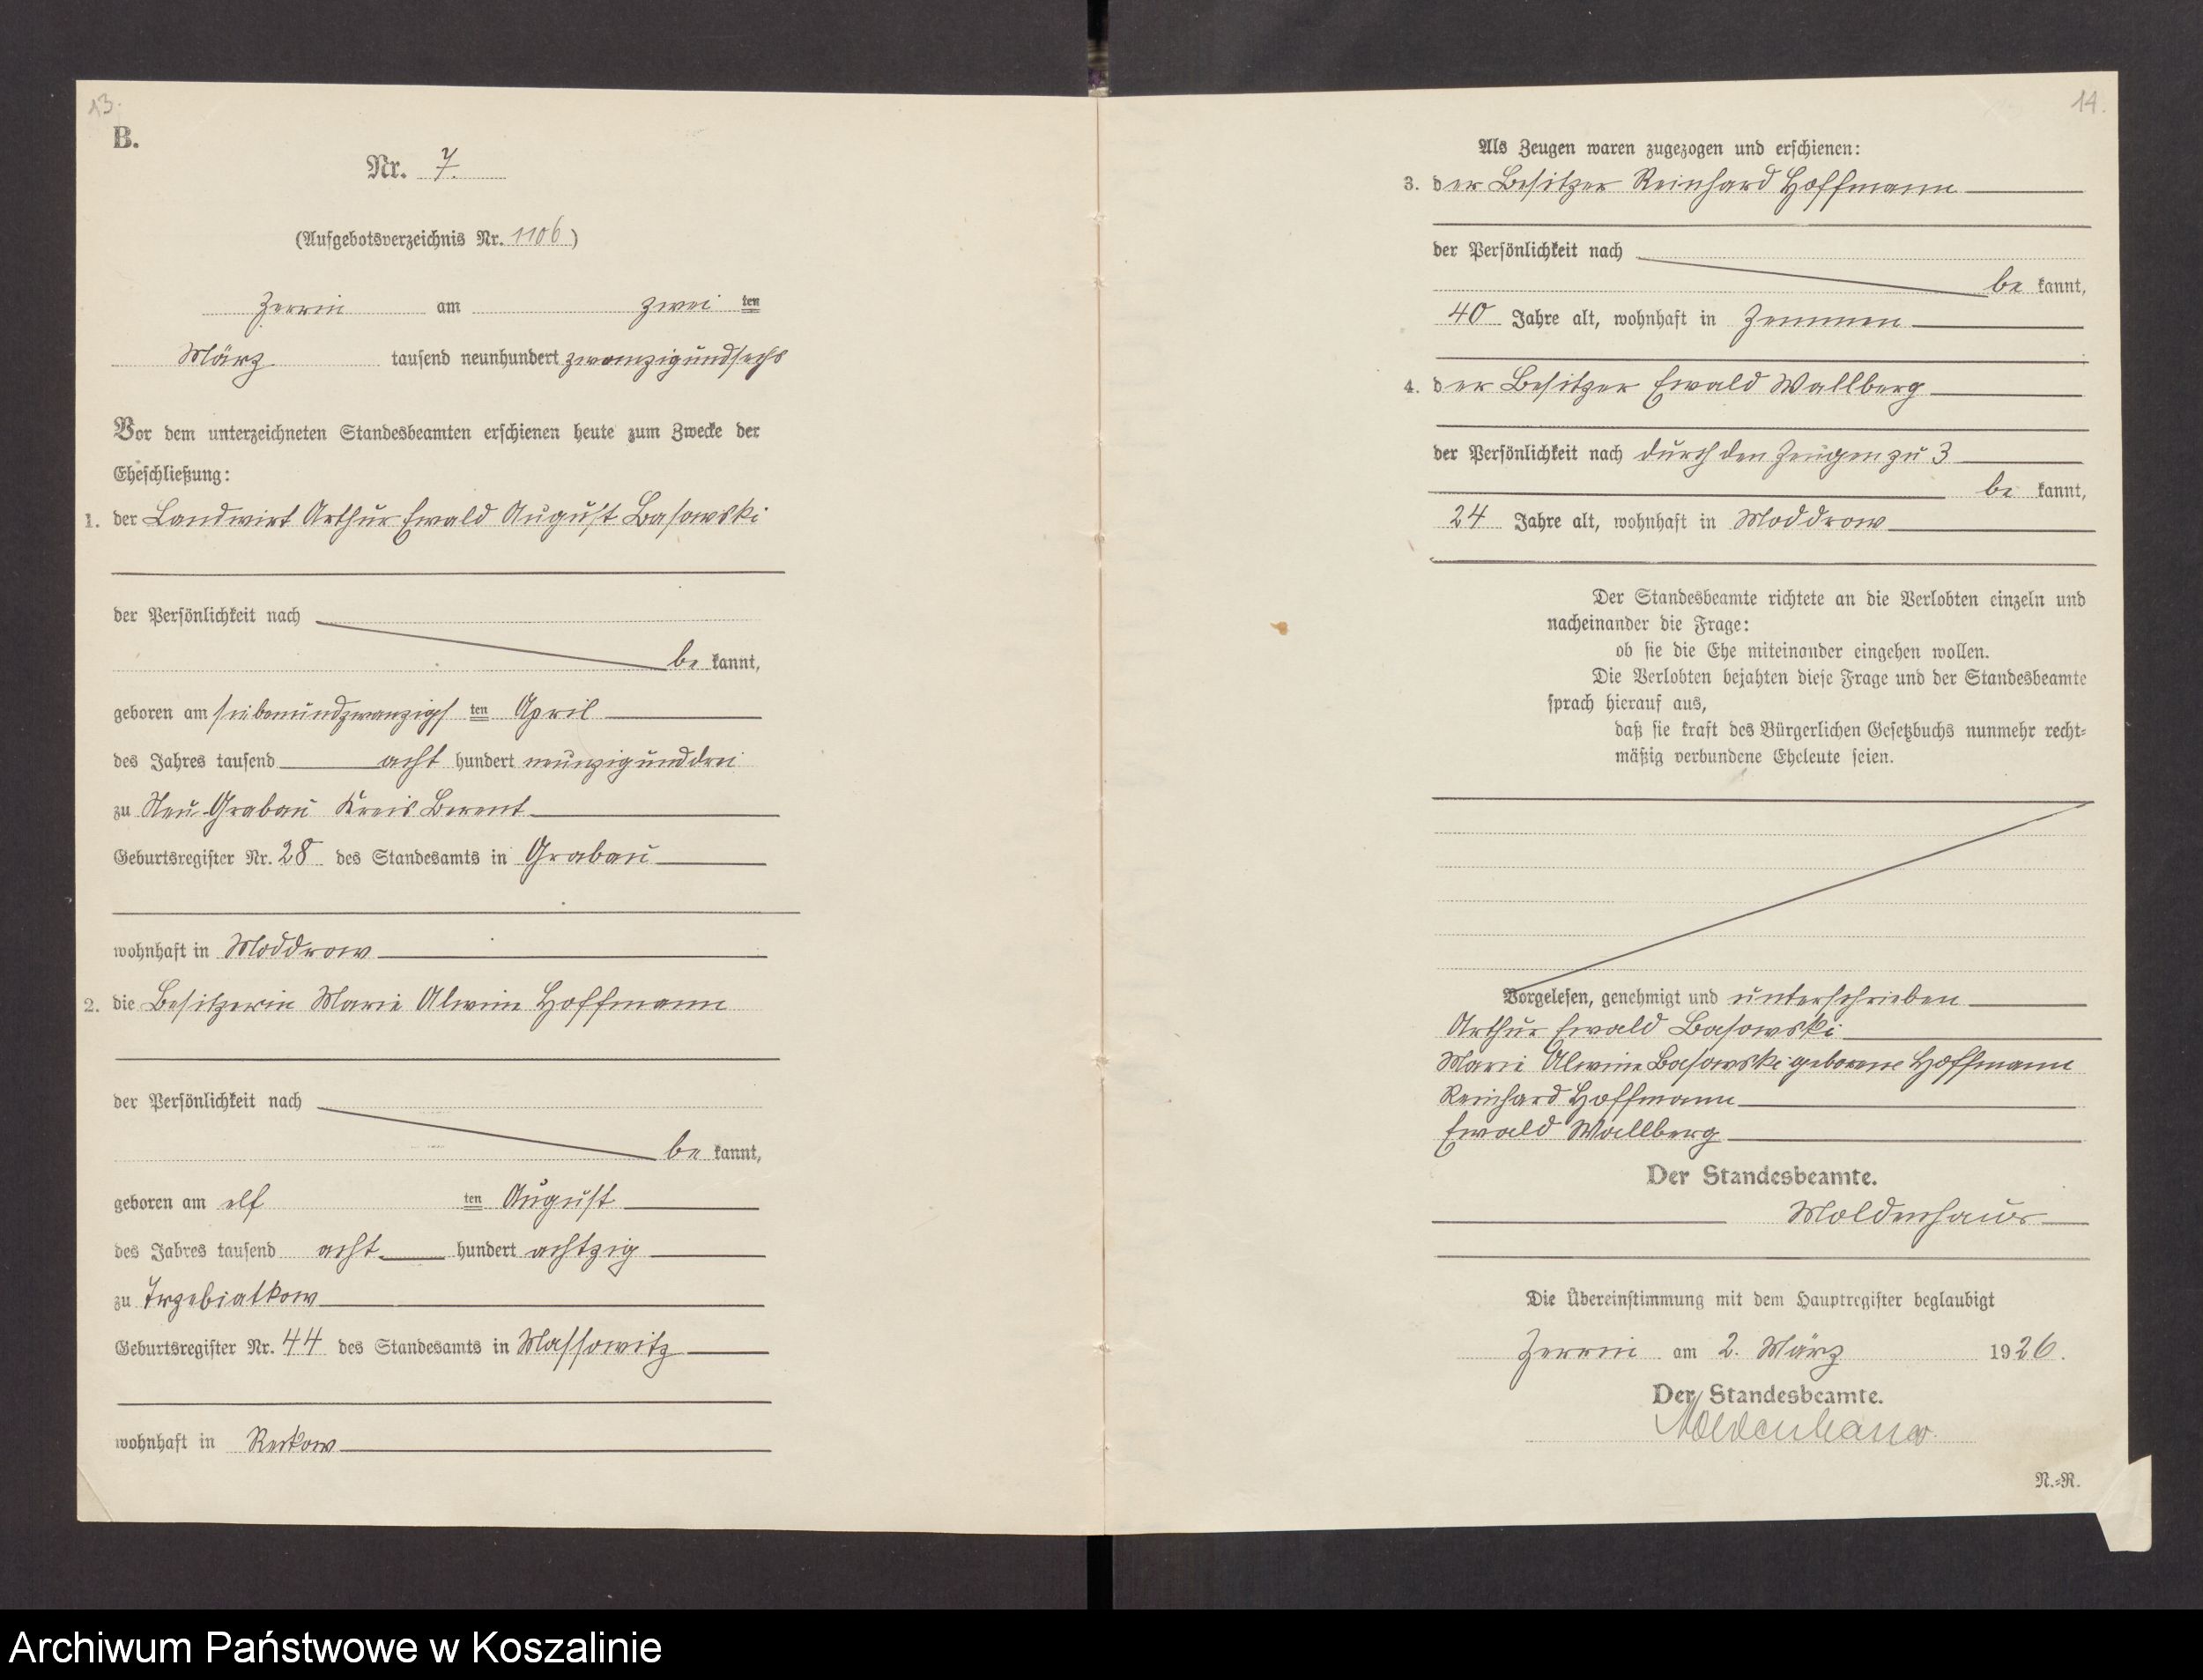 13.
B.
Nr. 7.
(Aufgebotsverzeichnis Nr. 1106)
Zerrin am zwei ten
März tausend neunhundert zwanzigundsechs
Vor dem unterzeichneten Standesbeamten erschienen heute zum Zwecke der
Eheschließung:
1. der Landwirt Arthur Ewald August Basowski
der Persönlichkeit nach
be kannt,
geboren am siebenundzwanzigs ten April
des Jahres tausend acht hundert neunzigunddrei
zu Neu-Grabau Kreis Berent
Geburtsregister Nr. 28 des Standesamts in Grabau
wohnhaft in Moddrow
2. die Besitzerin Marie Alwine Hoffmann
der Persönlichkeit nach
be kannt,
geboren am elf ten August
des Jahres tausend acht hundert achtzig
zu Trzebiatkow
Geburtsregister Nr. 44 des Standesamts in Massowitz
wohnhaft in Reckow
14.
Als Zeugen waren zugezogen und erschienen:
3. der Besitzer Reinhard Hoffmann
der Persönlichkeit nach
be kannt,
40 Jahre alt, wohnhaft in Zemmen
4. der Besitzer Ewald Wallberg
der Persönlichkeit nach durch den Zeugen zu 3
be kannt,
24 Jahre alt, wohnhaft in Moddrow
Der Standesbeamte richtete an die Verlobten einzeln und
nacheinander die Frage:
ob sie die Ehe miteinander eingehen wollen.
Die Verlobten bejahten diese Frage und der Standesbeamte
sprach hierauf aus,
daß sie kraft des Bürgerlichen Gesetzbuchs nunmehr recht-
mäßig verbundene Eheleute seien.
Vorgelesen, genehmigt und unterschrieben
Arthur Ewald Basowski
Marie Alwine Basowski geborene Hoffmann
Reinhard Hoffmann
Ewald Wallberg
Der Standesbeamte.
Moldenhauer
Die Übereinstimmung mit dem Hauptregister beglaubigt
Zerrin am 2. März 1926.
Der Standesbeamte.
Moldenhauer.
N.-R.
Archiwum Państwowe w Koszalinie